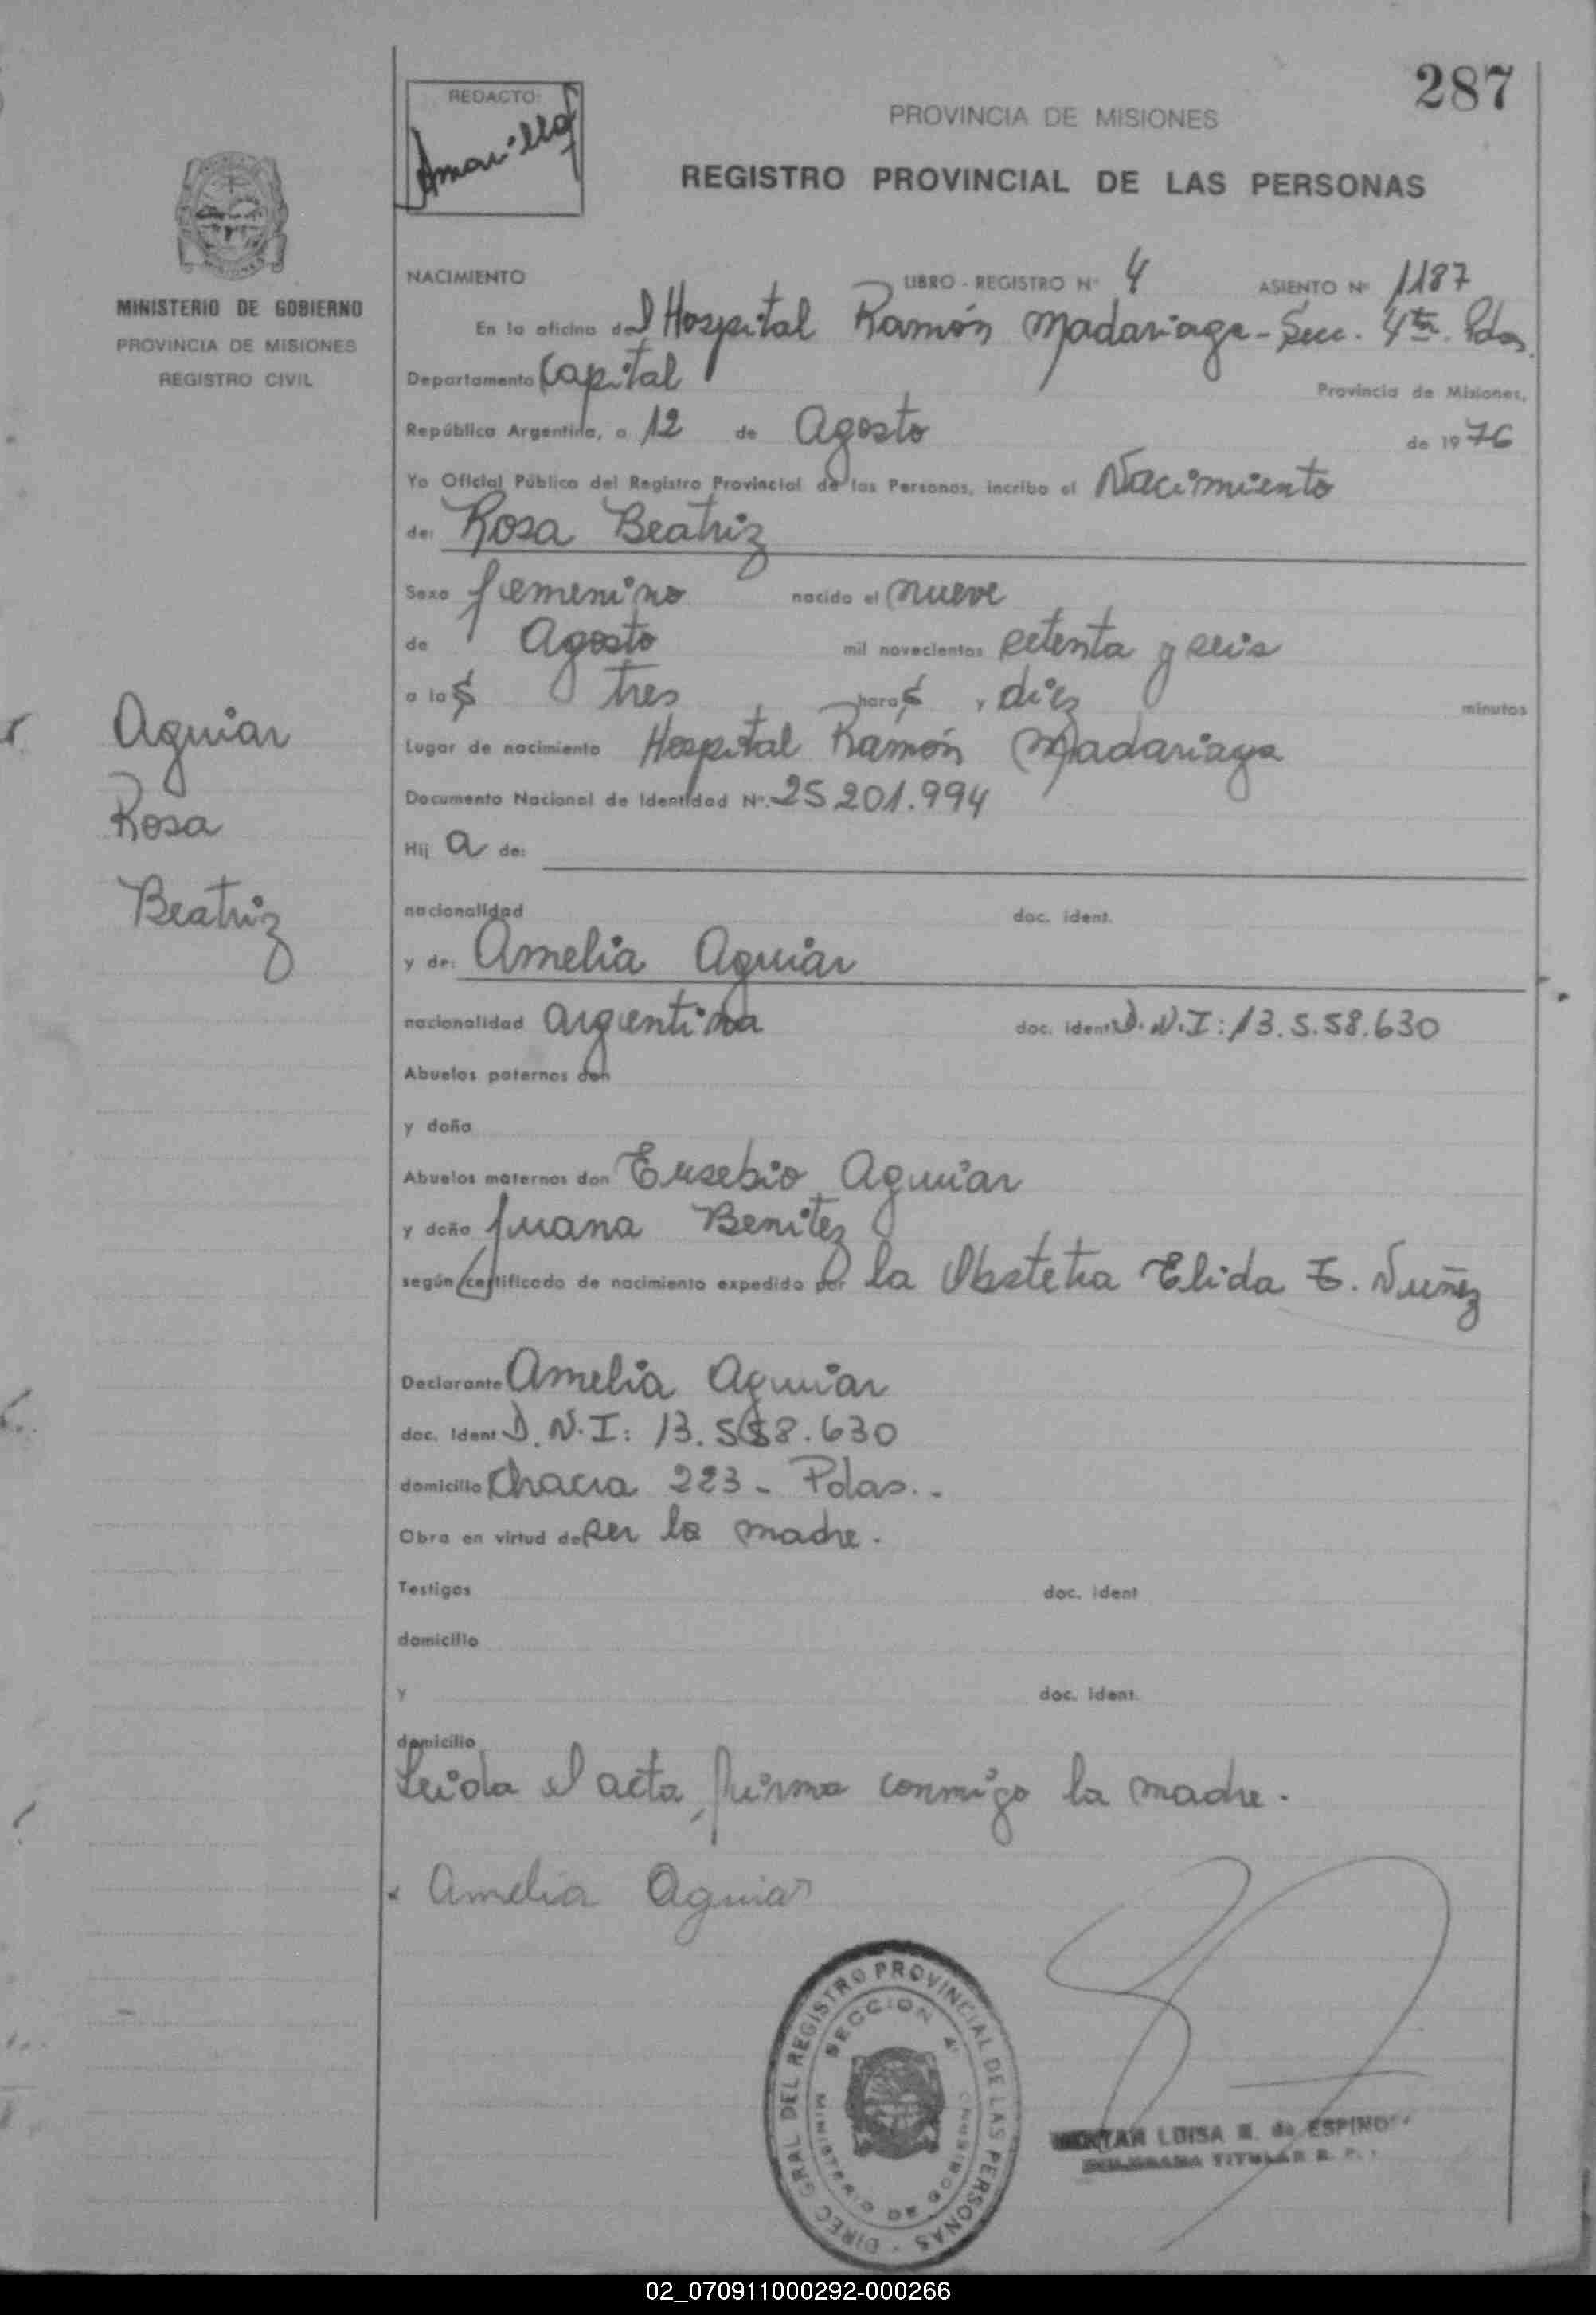 287
REDACTO:
Amarilla
PROVINCIA DE MISIONES
REGISTRO PROVINCIAL DE LAS PERSONAS
MINISTERIO DE GOBIERNO
PROVINCIA DE MISIONES
REGISTRO CIVIL
NACIMIENTO LIBRO - REGISTRO Nº 4 ASIENTO Nº 1187
En la oficina del Hospital Ramón Madariaga - Secc. 4ta. Pdas.
Departamento Capital Provincia de Misiones,
República Argentina, a 12 de Agosto de 1976
Yo Oficial Público del Registro Provincial de las Personas, incribo el Nacimiento
de: Rosa Beatriz
Sexo femenino nacido el nueve
de Agosto mil novecientos setenta y seis
a las tres horas y diez minutos
Lugar de nacimiento Hospital Ramón Madariaga
Documento Nacional de Identidad Nº. 25201.994
Hij a de:
nacionalidad doc. ident.
y de: Amelia Aguiar
nacionalidad argentina doc. ident D.N.I: 13.5.58.630
Abuelos paternos don
y doña
Abuelos maternos don Eusebio Aguiar
y doña Juana Benitez
según certificado de nacimiento expedido por la Obstetra Elida E. Nuñez
Aguiar
Rosa
Beatriz
Declarante Amelia Aguiar
doc. Ident D.N.I: 13.558.630
domicilio Chacra 223 - Pdas..-
Obra en virtud de ser la madre.
Testigos doc. ident
domicilio
y doc. Ident.
domicilio
Leida el acta, firma conmigo la madre.
Amelia Aguiar
DIREC GRAL DEL REGISTRO PROVINCIAL DE LAS PERSONAS
SECCION 4ª
MINISTERIO DE GOBIERNO
LUISA de ESPINO
TITULAR R. P.
02_070911000292-000266